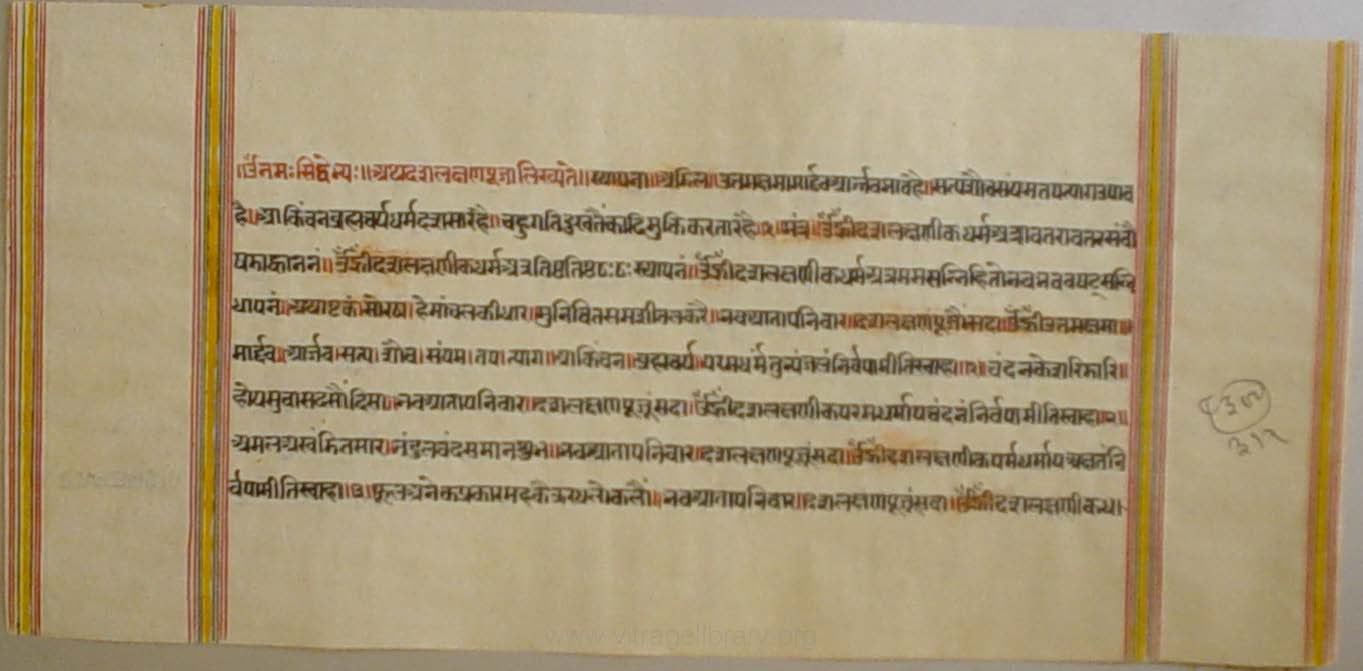 ॥ॐ नमः सिद्धेभ्यः॥ अथ दशलक्षण पूजा लिख्यते॥ स्थापना॥ अडिल॥ उत्तमक्षमा मार्दव आर्जव भाव है॥ सत्य शौच संयम तप त्याग उपाव
है॥ आकिंचन ब्रह्मचर्य धर्म दश सार है॥ चहुगति दुखतैं काढि मुक्ति करतार है॥१॥ मंत्र॥ ॐ ह्रीं दशलक्षणीक धर्म अत्रावतरावतर संवौ
षट् आह्वाननं॥ ॐ ह्रीं दशलक्षणीक धर्म अत्र तिष्ठ तिष्ठ ठः ठः स्थापनं॥ ॐ ह्रीं दशलक्षणीक धर्म अत्र मम सन्निहितो भव भव वषट् सन्नि
धापनं॥ अथाष्टकं॥ सोरठा॥ हेमांचल की धार॥ मुनि चित सम शीतल करै॥ भव आताप निवार॥ दशलक्षण पूजौं सदा॥ ॐ ह्रीं उत्तमक्षमा॥
मार्दव॥ आर्जव॥ सत्य। शौच। संयम। तप। त्याग॥ आकिंचन॥ ब्रह्मचर्य॥ निर्वपामीति स्वाहा॥१॥ चंदन केशरि गारि॥
होय सुवास दसौं दिसा॥ भव आताप निवार॥ दशलक्षण पूजूं सदा॥ ॐ ह्रीं दशलक्षणीक परमधर्माय चंदनं निर्वपामीति स्वाहा॥२॥
अमल अखंडित सार॥ तंदुल चंद समान शुभ॥ भव आताप निवार॥ दशलक्षण पूजूं सदा॥ ॐ ह्रीं दशलक्षणीक पर्मधर्माय अक्षतं नि
र्वपामीति स्वाहा॥३॥ फूल अनेक प्रकार महकै ऊरधलोकलौं॥ भव आताप निवार॥ दशलक्षण पूजूं सदा॥ ॐ ह्रीं दशलक्षणीक ध।
www.vitragelibrary.org